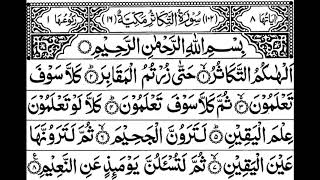 اٰیاتُهَا ٨ (١٠٢) سُوْرَةُ التَّكَاثُرِ مَكِّیَّةٌ (١٦) رُكُوْعُهَا ١
بِسْمِ اللّٰهِ الرَّحْمٰنِ الرَّحِیْمِ
اَلْهٰىكُمُ التَّكَاثُرُ ۙ۝١ حَتّٰى زُرْتُمُ الْمَقَابِرَ ؕ۝٢ كَلَّا سَوْفَ
تَعْلَمُوْنَ ۙ۝٣ ثُمَّ كَلَّا سَوْفَ تَعْلَمُوْنَ ؕ۝٤ كَلَّا لَوْ تَعْلَمُوْنَ
عِلْمَ الْیَقِیْنِ ؕ۝٥ لَتَرَوُنَّ الْجَحِیْمَ ۙ۝٦ ثُمَّ لَتَرَوُنَّهَا
عَیْنَ الْیَقِیْنِ ۙ۝٧ ثُمَّ لَتُسْـَٔلُنَّ یَوْمَىِٕذٍ عَنِ النَّعِیْمِ ۝٨